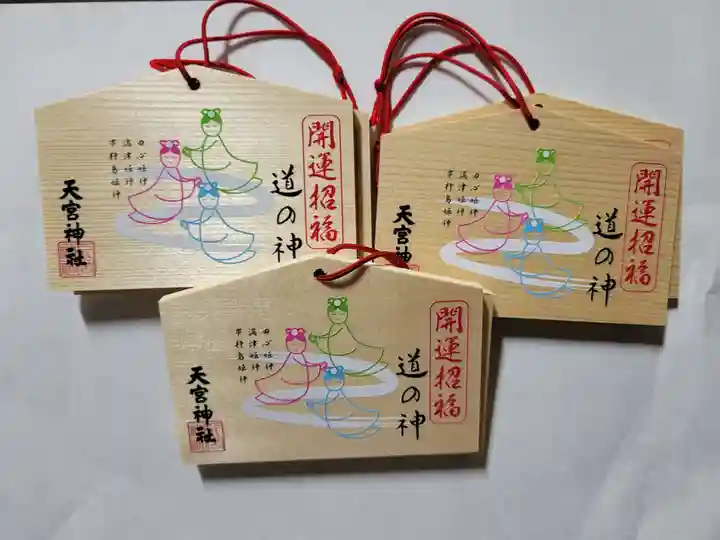 開運招福
道の神
田心姫神
湍津姫神
市杵島姫神
天宮神社
開運招福
道の神
田心姫神
湍津姫神
市杵島姫神
天宮神
開運招福
道の神
田心姫神
湍津姫神
市杵島姫神
天宮神社